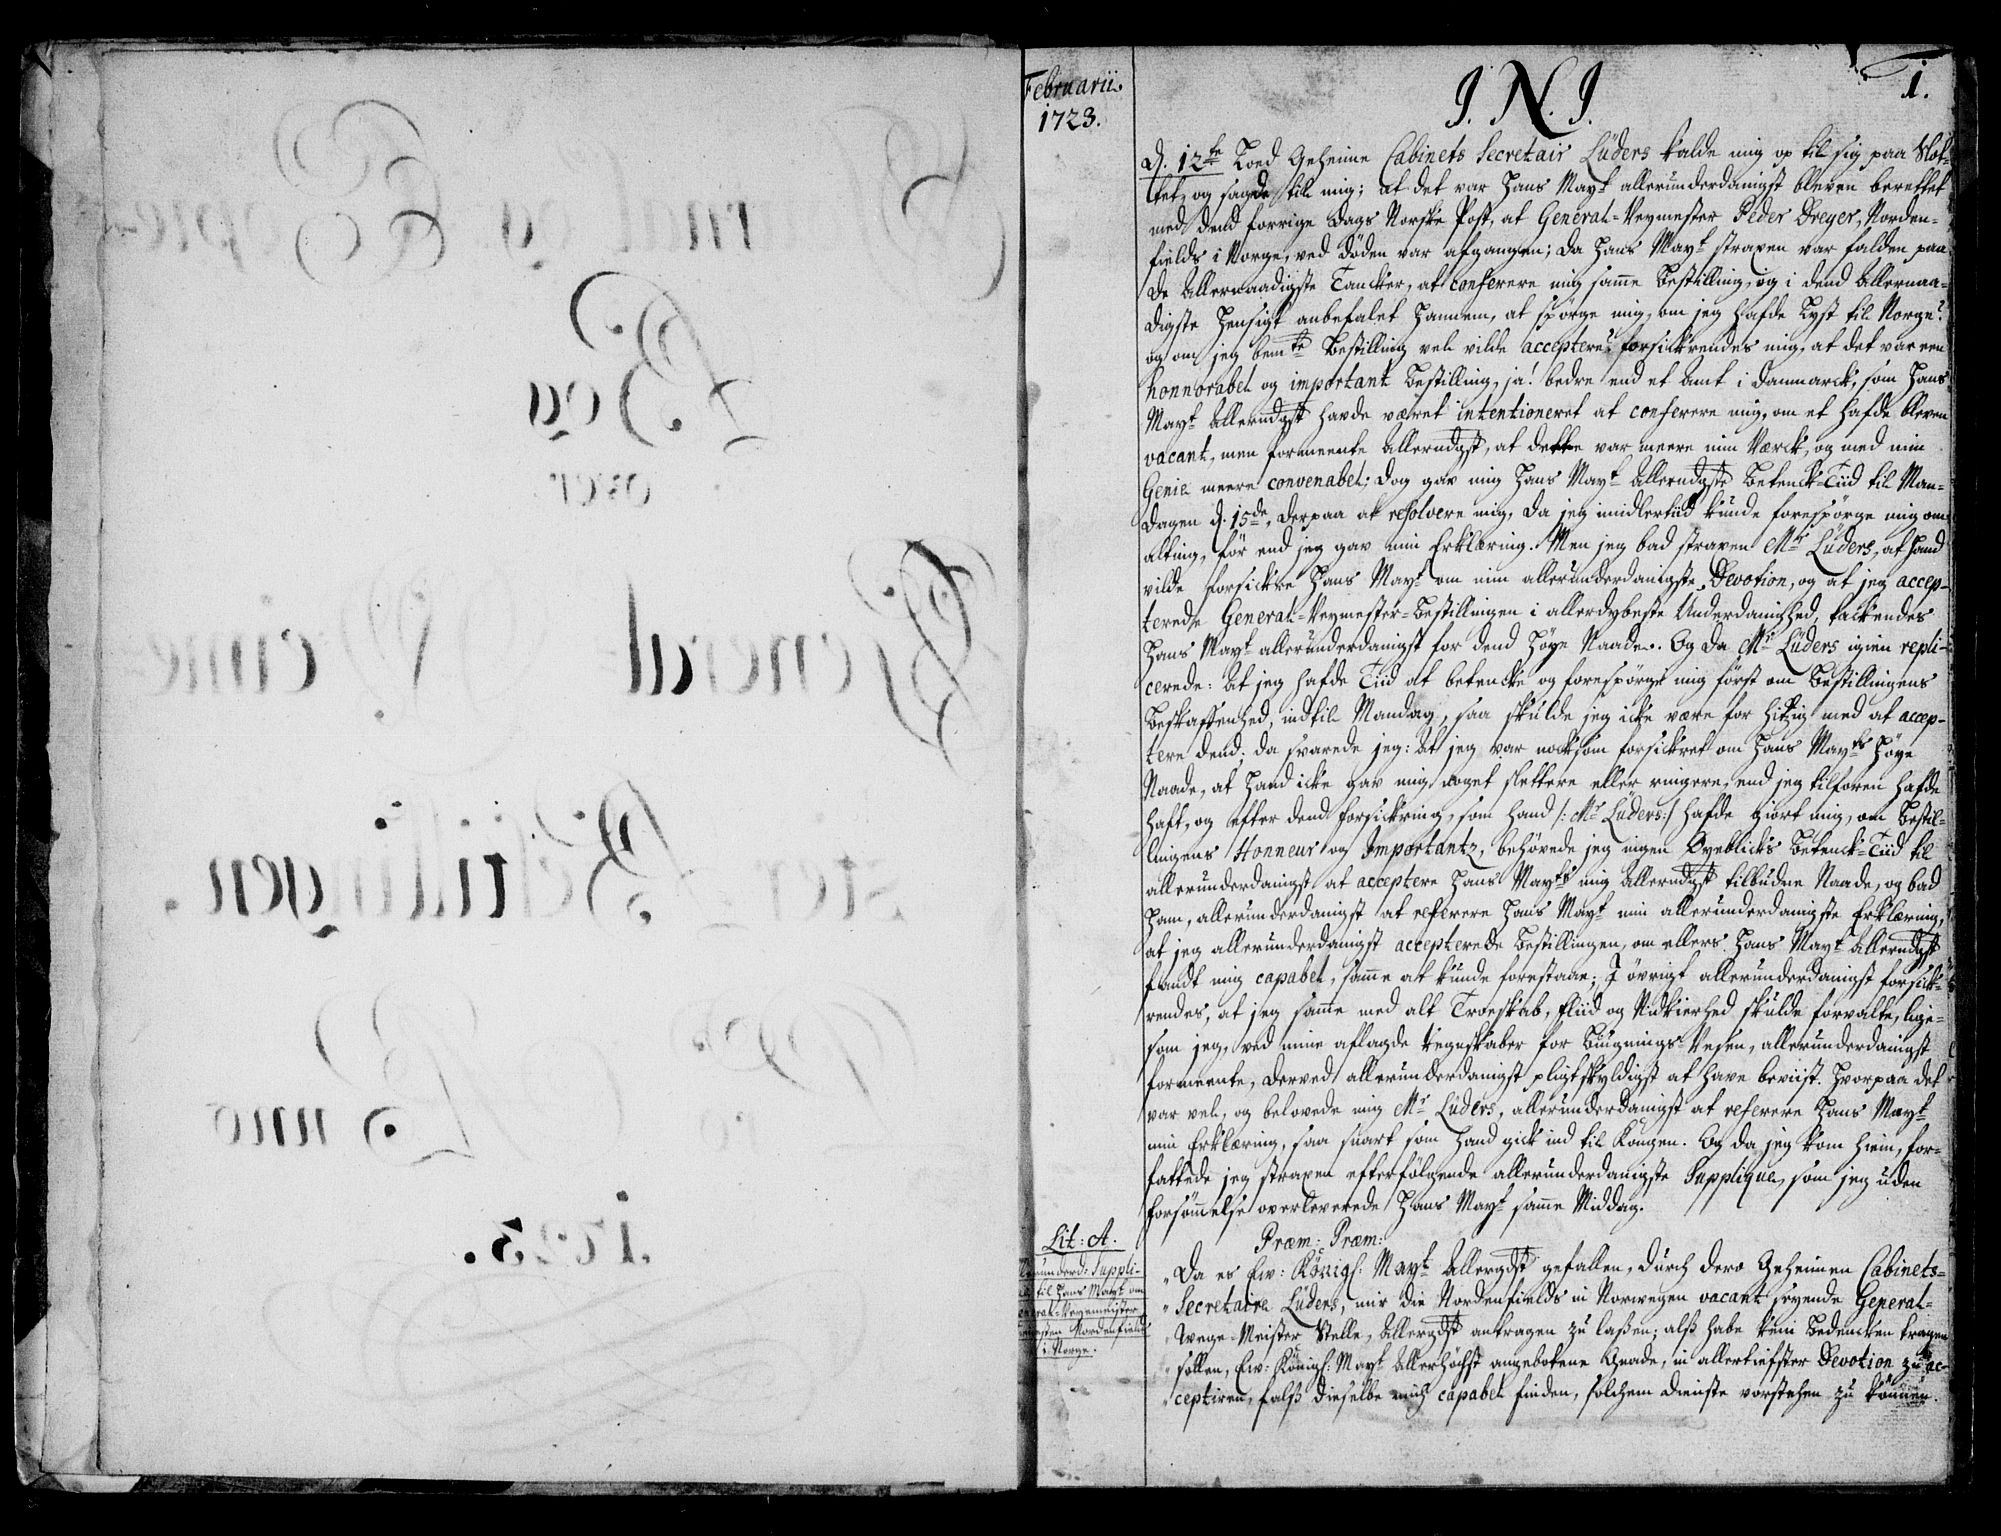 Februarii.
1723.
J. N. J.
1.
d. 12te Loed Geheime Cabinets Secretair Lüders kalde mig op til sig paa Slot-
tet, og sagde til mig; at det var Hans Mayt allerunderdanigst bleven berettet
med dend forrige Dags Norske Post, at General-Veymester Peder Dreyer, Norden-
fields i Norge, ved Döden var afgangen; da Hans Mayt straxen var falden paa
de Allernaadigste Tancker, at conferere mig samme Bestilling, og i dend Allernaa-
digste Hensigt anbefalet hannem, at spörge mig, om jeg hafde Lyst til Norge?
og om jeg bemte Bestilling vel vilde acceptere? forsickrendes mig, at det var een
honnorabel og important Bestilling, ja! bedre end et Amt i Danmarck, som Hans
Mayt Allerndgst havde været intentioneret at conferere mig, om et hafde bleven
vacant, men formeente Allerndgst, at dette var meere min Værck, og med min
Genie meere convenabel; dog gav mig Hans Mayt Allerndgste Betenck-Tiid til Man-
dagen d. 15de, derpaa at resolvere mig, da jeg imidlertiid kunde forespörge mig om
alting, för end jeg gav min Erklæring. Men jeg bad straxen Mr Lüders, at hand
vilde forsickre Hans Mayt om min allerunderdanigste Devotion, og at jeg accep-
terede General-Veymester-Bestillingen i allerdybeste Underdanighed, tackendes
Hans Mayt allerunderdanigst for dend Höye Naade. Og da Mr Lüders igien repli-
cerede: At jeg hafde Tiid at betencke og forespörge mig först om Bestillingens
Beskaffenhed, indtil Mandag, saa skulde jeg icke være for hitzig med at accep-
tere dend; da svarede jeg: At jeg var nocksom forsickret om Hans Mayts Höye
Naade, at Hand icke gav mig noget slettere eller ringere, end jeg tilforen hafde
haft, og efter dend Forsickring, som hand /: Mr Lüders :/ hafde giort mig, om Bestil-
lingens Honneur og Importantz, behövede jeg ingen Öyeblicks Betenck-Tiid til
allerunderdanigst at acceptere Hans Mayts mig Allerndgst tilbudne Naade, og bad
ham, allerunderdanigst at referere Hans Mayt min allerunderdanigste Erklæring,
at jeg allerunderdanigst accepterede Bestillingen, om ellers Hans Mayt Allerndgst
fandt mig capabel, samme at kunde forestaae; I övrigt allerunderdanigst forsick-
rendes, at jeg samme med alt Troeskab, Fliid og Nidkierhed skulde forvalte, lige-
som jeg, ved mine aflagde Regnskaber for Buignings-Vesen, allerunderdanigst
formeente, derved allerunderdanigst pligtskyldigst at have beviist. Hvorpaa det
var vel, og belovede mig Mr Lüders, allerunderdanigst at referere Hans Mayt
min Erklæring, saa snart som hand gick ind til Kongen. Og da jeg kom hiem, for-
fattede jeg straxen efterfölgende allerunderdanigste Supplique, som jeg uden
Forsömmelse overleverede Hans Mayt samme Middag.
Lit: A.
Allerunderd: Suppli-
til Hans Mayt om
General-Veyemeister
Nordenfields
i Norge.
Præm: Præm:
"Da es Ew: Königl. Mayt Allergdst gefallen, durch dero Geheimen Cabinets-
"Secretaire Lüders, mir die Nordenfields in Norwegen vacant seyende General-
"Wege-Meister Stelle, Allergdst antragen zu laßen; alß habe kein Bedencken tragen
"sollen, Ew: Königl: Mayt Allerhöchst angebotene Gnade, in allertiefster Devotion zu ac-
"ceptiren, falß dieselbe mich capabel finden, solchem Dienste vorstehen zu können.